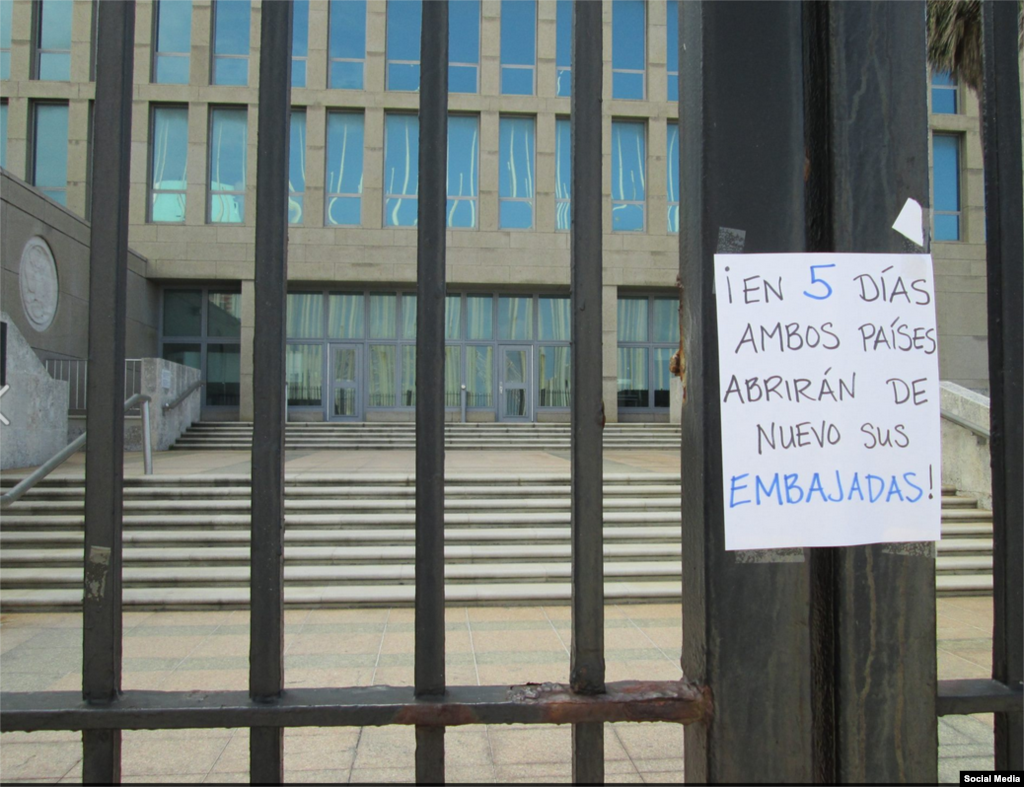 ¡EN 5 DÍAS
AMBOS PAÍSES
ABRIRÁN DE
NUEVO SUS
EMBAJADAS!
Social Media